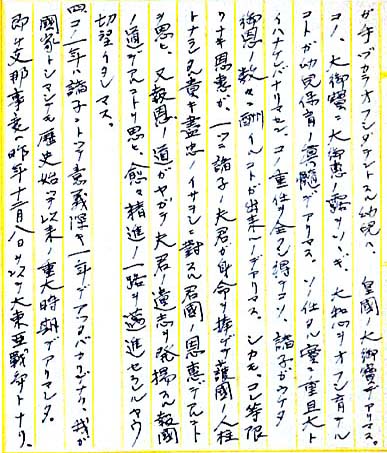 ガ手ヅカラオアヅカリスル幼児ハ、皇國ノ大御寶デアリマス。
コノ大御寶ニ大御恵ノ露ヲソソギ、大和心ヲオフシ育テル
コトガ幼児保育ノ真髄デアリマス。ソノ仕タル實ニ重且大ト
イハナケレバナリマセン。コノ重任ヲ全ウシ得テコソ、諸子ガウケタ
御恩ノ数々ニ酬イルコトガ出来ルノデアリマス。シカモ、コレ等限
リナキ恩恵ガ、一ツニ諸子ノ夫君ガ身命ヲ捧ゲテ護國ノ人柱
トナラレタ貴キ盡忠ノイサヲシニ對スル君國ノ恩恵デアルコト
ヲ思ヒ、又報恩ノ道ガヤガテ夫君ノ遺志ヲ発揚スル報國
ノ道デアルコトヲ思ヒ、愈々精進ノ一路ヲ邁進セラルルヤウ
切望イタシマス。
四、コノ一年ハ諸子ニトツテ意義深キ一年デアツタバカリデナク、我ガ
國家トシマシテモ歴史始ツテ以来ノ重大時期デアリマシタ。
即チ支那事変ハ昨年十二月八日ヲ以テ大東亜戦争トナリ、